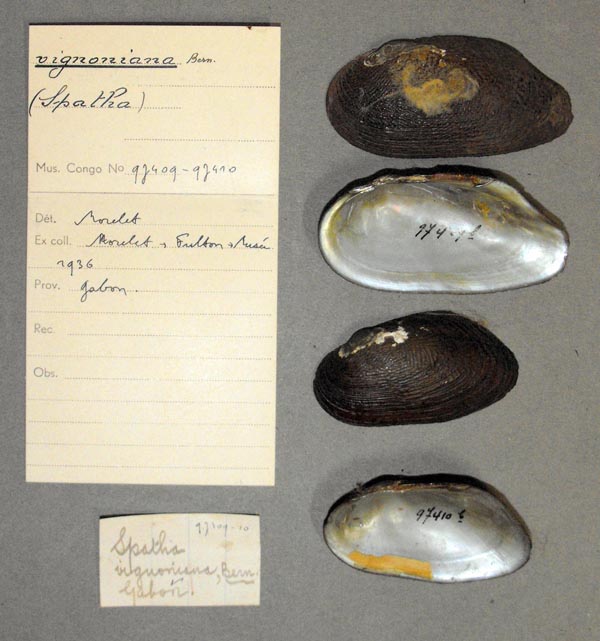 vignoniana Bern.
(Spatha)
Mus. Congo No 97409-97410
Dét. Morelet
Ex coll. Morelet → Fulton → Musée
1936
Prov. Gabon.
Rec.
Obs.
97409-10
Spatha
vignoniana, Bern.
Gabon
97410 b